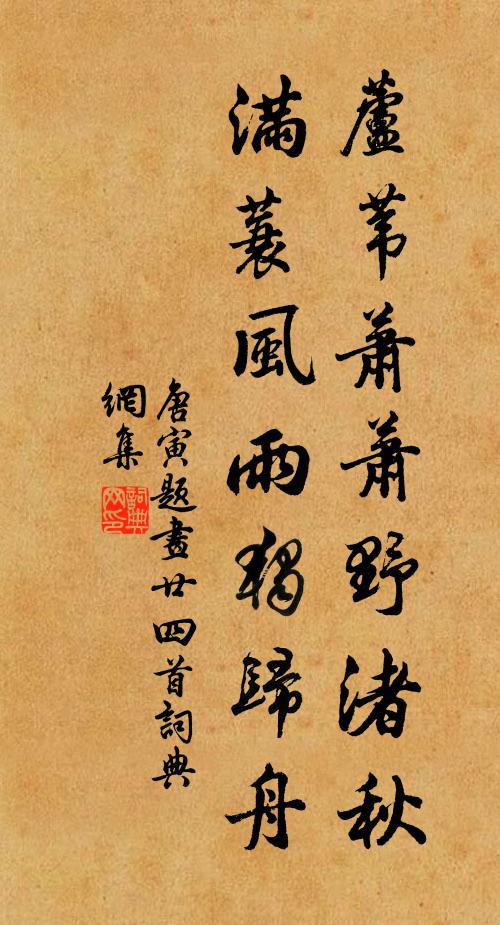 蘆葦蕭蕭野渚秋
滿蓑風雨獨歸舟
唐寅題畫廿四首詞典
網集
詞典
网印